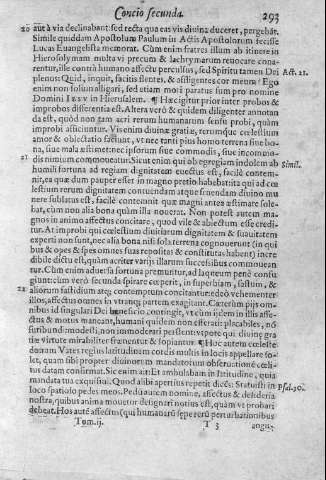 Concio secunda. 293
20 aut à via declinabant: sed recta qua eas vis divina duceret, pergebāt.
Simile quiddam Apostolum Paulum in Actis Apostolorum fecisse
Lucas Euangelista memorat. Cùm enim fratres illum ab itinere in
Hierosolymam multa vi precum & lachrymarum reuocare cona-
rentur, ille contrà humano affectu perculsus, sed Spiritu tamen Dei Act. 21.
plenus: Quid, inquit, facitis flentes, & affligentes cor meum? Ego
enim non solùm alligari, sed etiam mori paratus sum pro nomine
Domini IESV in Hierusalem. ¶ Hæc igitur prior inter probos &
improbos differentia est. Altera verò & quidem diligenter annotan
da est, quòd non tam acri rerum humanarum sensu probi, quàm
improbi afficiuntur. Vis enim diuinæ gratiæ, rerumque cœlestium
amor & oblectatio faciunt, vt nec tanti pius homo terrena siue bo-
na, siue mala æstimet: nec ipsorum siue commodis, siue incommo-
21 dis nimium commoueatur. Sicut enim qui ob egregiam indolem ab Simil.
humili fortuna ad regiam dignitatem euectus est, facilè contem-
nit, ea quæ dum pauper esset in magno pretio habebat: ita qui ad cœ
lestium rerum dignitatem contuendam atque fruendam diuino mu
nere sublatus est, facilè contemnit quæ magni antea æstimare sole-
bat, cùm non alia bona quàm illa nouerat. Non potest autem ma-
gnos in animo affectus concitare, quod vile & abiectum esse credi-
tur. At improbi qui cœlestium diuitiarum dignitatem & suauitatem
experti non sunt, nec alia bona nisi sola terrena cognouerunt (in qui
bus & opes & spes omnes suas repositas & constitutas habent) incre
dibile dictu est, quàm acriter varijs illarum successibus commouean
tur. Cùm enim aduersa fortuna premuntur, ad laqueum penè confu
giunt: cùm verò secunda spirare cœperit, in superbiam, fastum, &
22 aliorum fastidium atq; contemptum concitantur: adeò vehementer
illos, affectus omnes in vtranq; partem exagitant. Cæterùm pijs om-
nibus id singulari Dei beneficio contingit, vt cùm ijdem in illis affe-
ctus & motus maneant, humani quidem non efferati: placabiles, nō
furibundi: modesti, non immoderati persistent: vtpote qui diuinæ gra
tiæ virtute mirabiliter frænentur & leniantur. ¶ Hoc autem cœleste
donum Vates regius latitudinem cordis multis in locis appellare so-
let, quam sibi propter diuinorum mandatorum obseruationē cœli-
tus datam confirmat. Sic enim ait: Et ambulabam in latitudine, quia
mandata tua exquisiui. Quod alibi apertius repetit dicēs: Statuisti in Psal. 30.
loco spatioso pedes meos. Pedū autem nomine, affectus & desideria
nostra, quibus anima mouetur designari notius est, quàm vt probari
debeat. Hos autē affectus (qui humanarū sępe rerū perturbationibus
Tom. ij. T 3 angu-